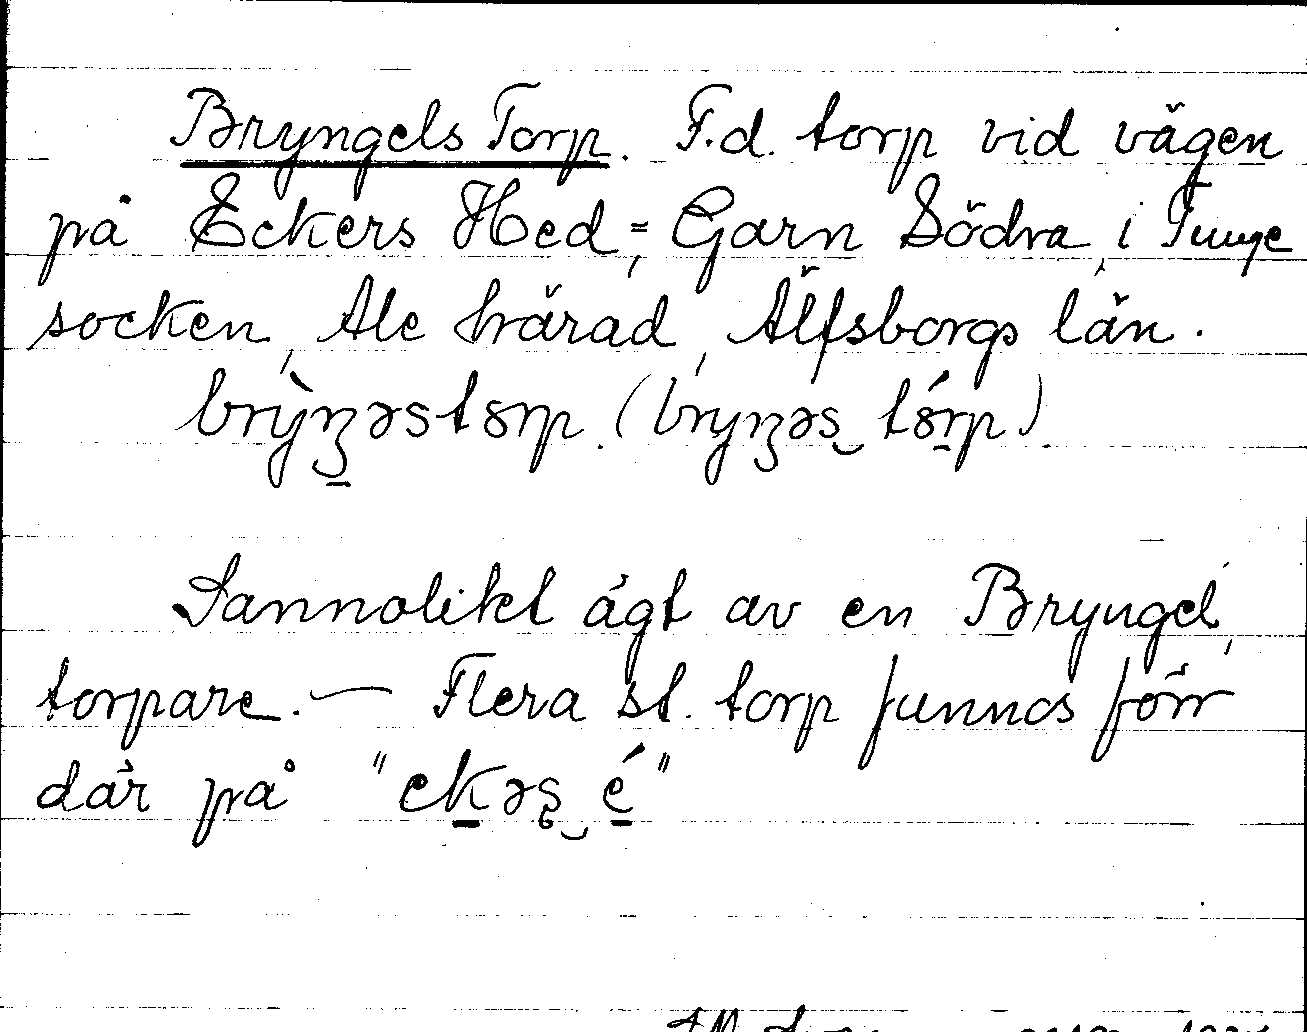 Bryngels Torp. F.d. torp vid vägen
på Eckers Hed, = Garn Södra, i Tunge
socken, Ale härad, Älfsborgs län.
brỳŋəstɷrp. (bryŋəs‿tɷ́rp).
Sannolikt ägt av en Bryngel,
torpare. — Flera st. torp funnos förr
där på "ekəʂ‿é"